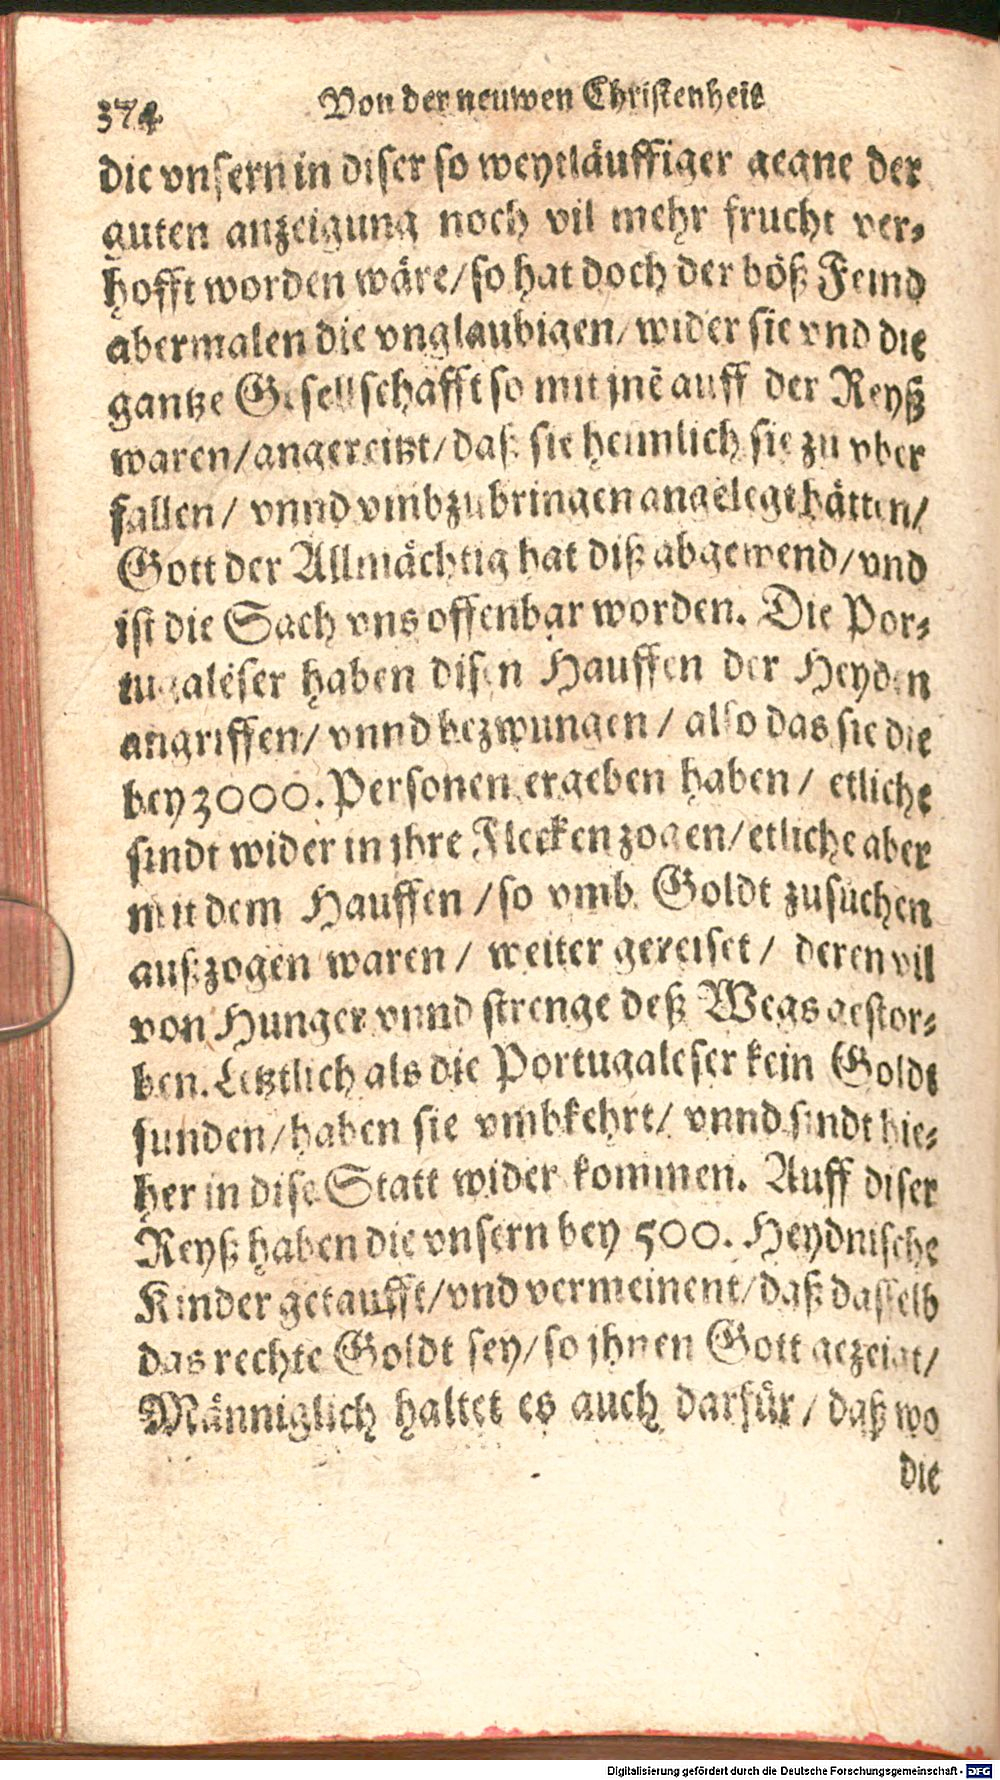 374 Von der neuwen Christenheit
die vnsern in diser so weytläuffiger gegne der
guten anzeigung noch vil mehr frucht ver⸗
hofft worden wäre/ so hat doch der böß Feind
abermalen die vnglaubigen/ wider sie vnd die
gantze Gesellschafft so mit jnē auff der Reyß
waren/ angereitzt/ daß sie heimlich sie zu vber
fallen/ vnnd vmbzubringen angelegt hätten/
Gott der Allmächtig hat diß abgewend/ vnd
ist die Sach vns offenbar worden. Die Por⸗
tugaleser haben disen Hauffen der Heyden
angriffen/ vnnd bezwungen/ also das sie die
bey 3000. Personen ergeben haben/ etliche
sindt wider in ihre Flecken zogen/ etliche aber
mit dem Hauffen/ so vmb Goldt zusuchen
außzogen waren/ weiter gereiset/ deren vil
von Hunger vnnd strenge deß Wegs gestor⸗
ben. Letztlich als die Portugaleser kein Goldt
funden/ haben sie vmbkehrt/ vnnd sindt hie⸗
her in dise Statt wider kommen. Auff diser
Reyß haben die vnsern bey 500. Heydnische
Kinder getaufft/ vnd vermeinent/ daß dasselb
das rechte Goldt sey/ so ihnen Gott gezeigt/
Männiglich haltet es auch darfür/ daß wo
die
Digitalisierung gefördert durch die Deutsche Forschungsgemeinschaft - DFG